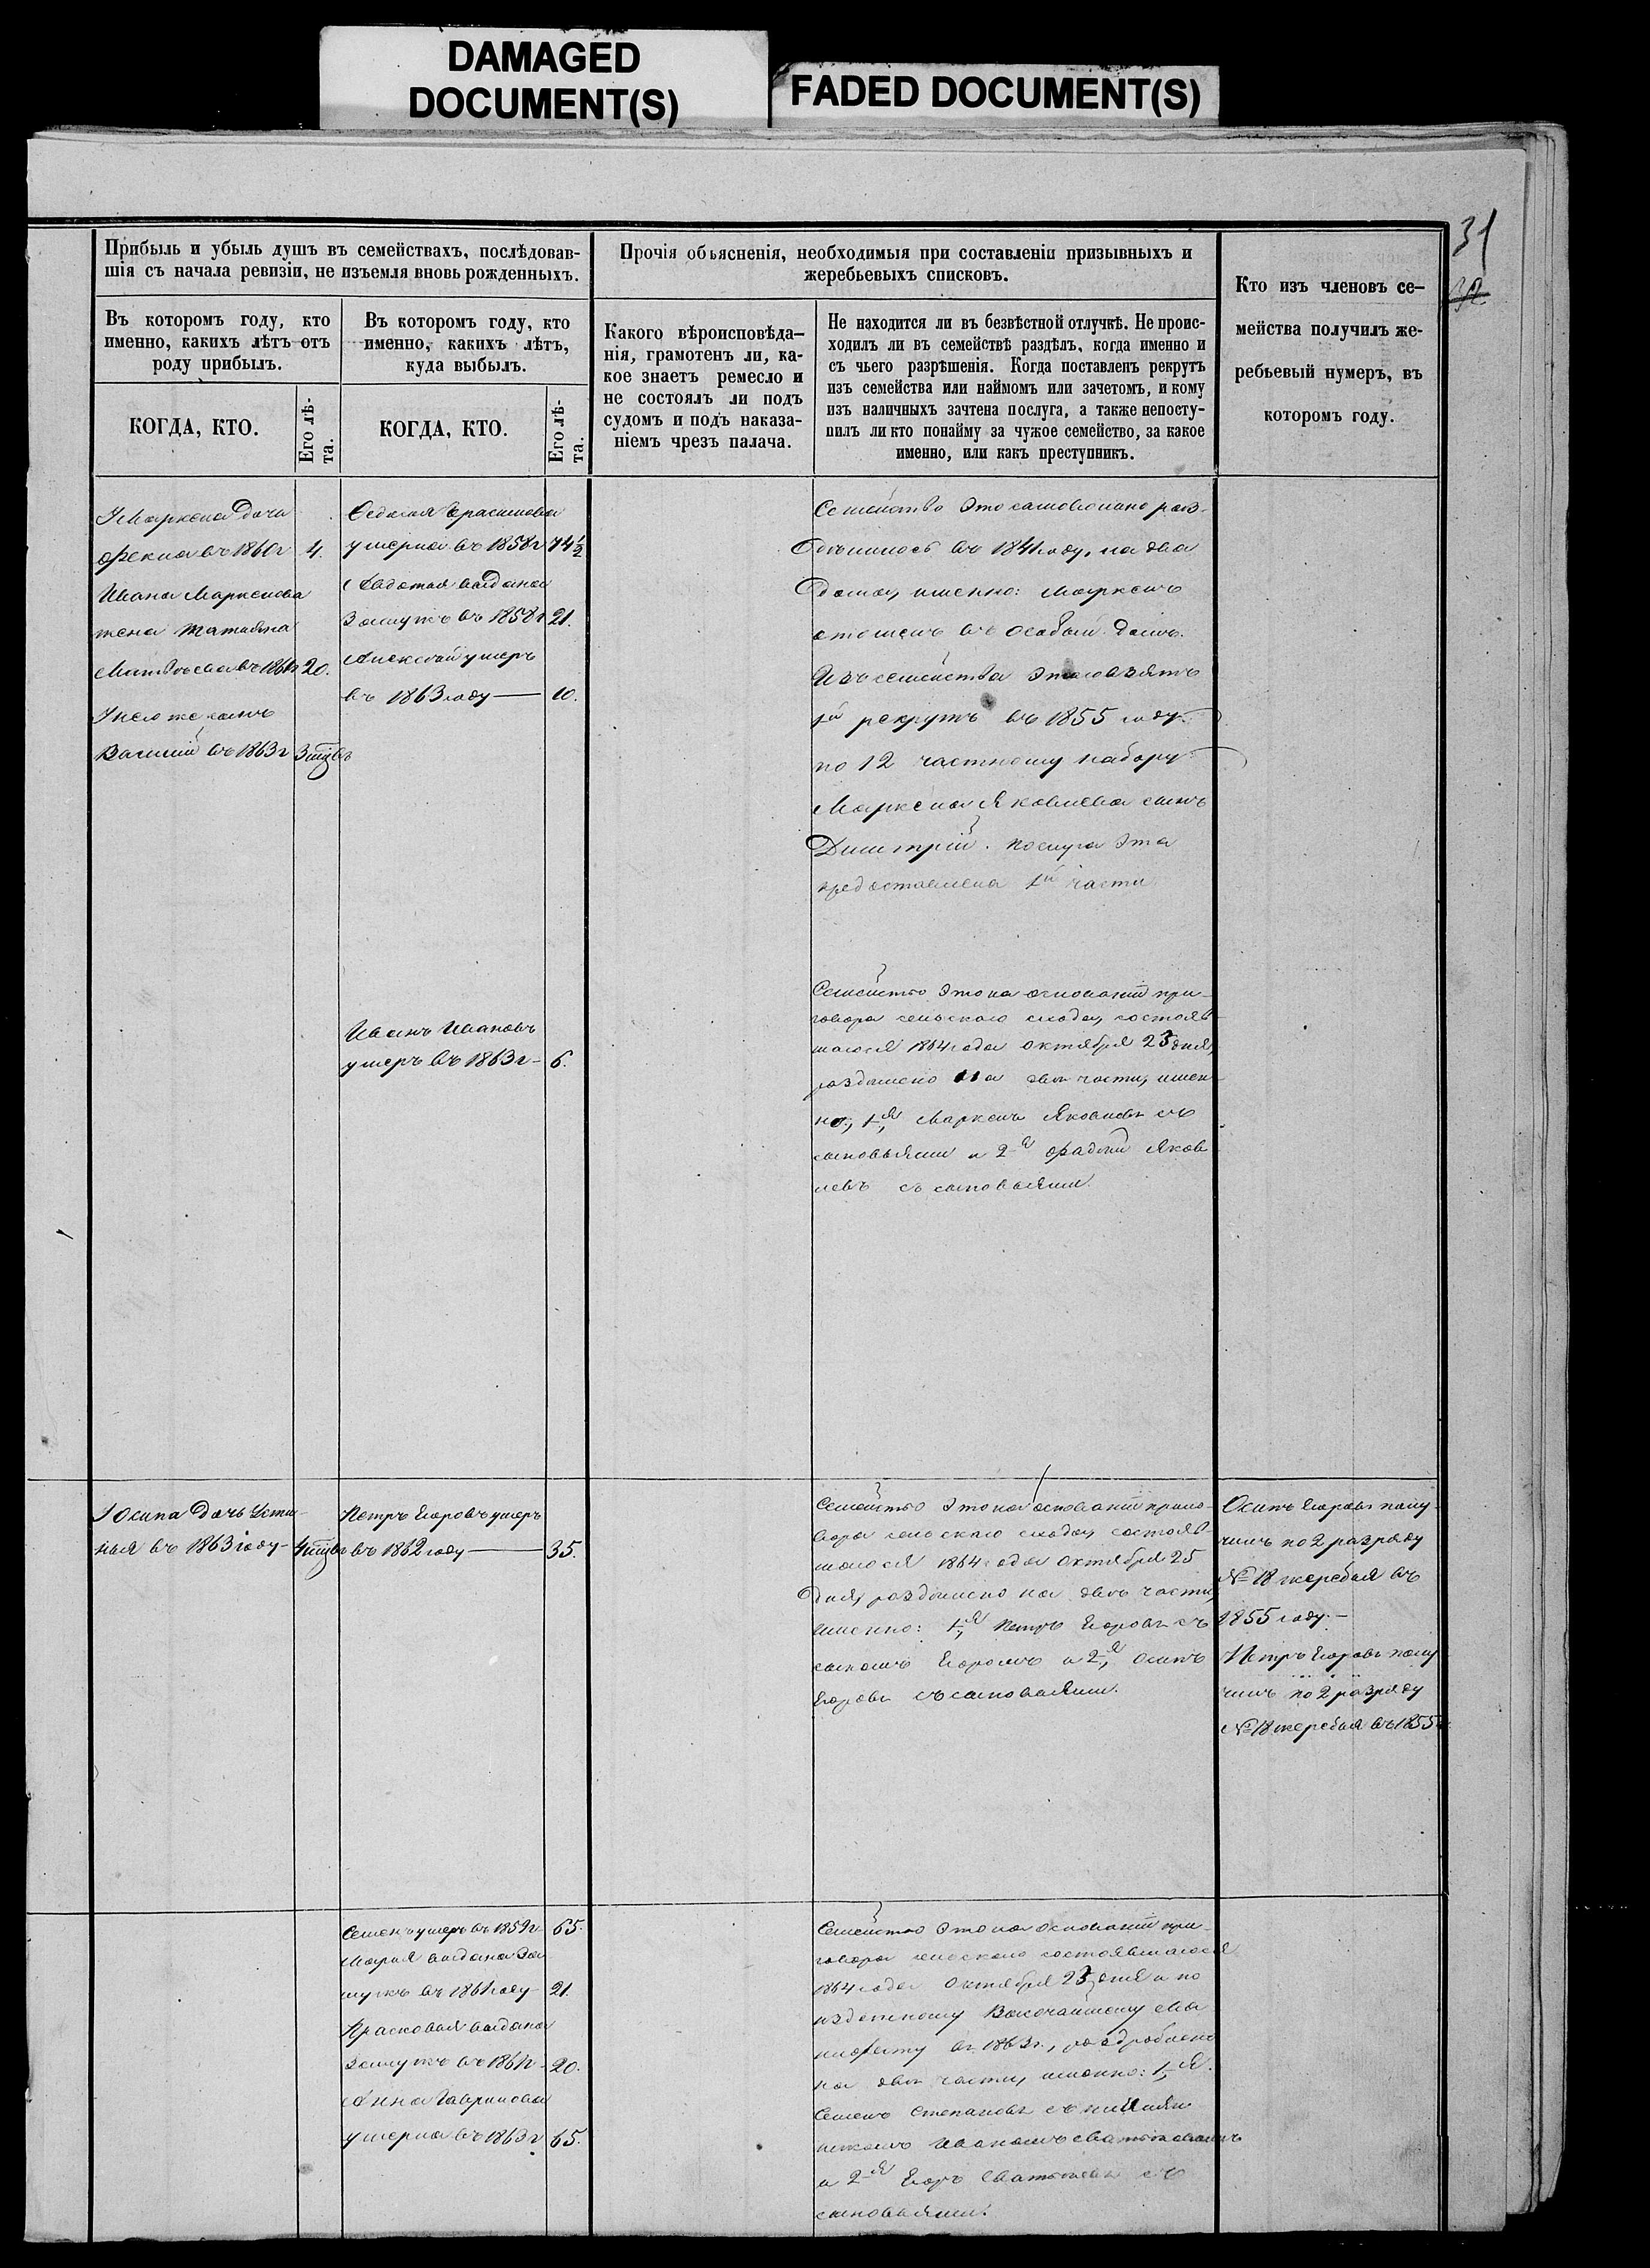 DAMAGED
DOCUMENT(S)
FADED DOCUMENT(S)
31
32
Прибыль и убыль душъ въ семействахъ, послѣдовав-
шія съ начала ревизіи, не изъемля вновь рожденныхъ.
Въ которомъ году, кто
именно, какихъ лѣтъ отъ
роду прибылъ.
КОГДА, КТО.
Его лѣ-
та.
Въ которомъ году, кто
именно, какихъ лѣтъ,
куда выбылъ.
КОГДА, КТО.
Его лѣ-
та.
Прочія объясненія, необходимыя при составленіи призывныхъ и
жеребьевыхъ списковъ.
Какого вѣроисповѣда-
нія, грамотенъ ли, ка-
кое знаетъ ремесло и
не состоялъ ли подъ
судомъ и подъ наказа-
ніемъ чрезъ палача.
Не находится ли въ безвѣстной отлучкѣ. Не проис-
ходилъ ли въ семействѣ раздѣлъ, когда именно и
съ чьего разрѣшенія. Когда поставленъ рекрутъ
изъ семейства или наймомъ или зачетомъ, и кому
изъ наличныхъ зачтена послуга, а также непосту-
пилъ ли кто понайму за чужое семейство, за какое
именно, или какъ преступникъ.
Кто изъ членовъ се-
мейства получилъ же-
ребьевый нумеръ, въ
которомъ году.
УМаркела дочь
Фекла въ 1860г 4.
Ивана Маркелова
жена Татьяна
Матвѣева въ 186 г 20.
Унего же сынъ
Василій въ 1863г 3
Федосья Герасимова
умерла въ 1858г 74½
Авдотья выдана
Замужъ въ 1858г 21.
Алексѣй умеръ
въ 1863 году — 10.
Семейство это самовольно раз-
дѣлилось въ 1841 году, на два
дома, именно: Маркелъ
отошелъ въ особый домъ.
Изъ семейства этого взятъ
1й рекрутъ въ 1855 году
по 12 частному набору
Маркела Яковлева сынъ
Дмитрій. послуга эта
предоставлена 1й части
Иванъ Ивановъ
умеръ въ 1863г — 6.
Семейство это на основаніи при-
говора сельскаго схода, состояв-
шагося 1864 года октября 25 дня,
раздѣлено на двѣ части, имен-
но; 1я Маркелъ Яковлевъ съ
сыновьями и 2я Фадей Яков-
левъ съ сыновьями.
УОсипа дочь Усти-
нья въ 1863 году — 4
Петръ Егоровъ умеръ
въ 1862 году — 35.
Семейство это на основаніи приго-
вора сельскаго схода, состояв-
шагося 1864 года октября 25
дня, раздѣлено на двѣ части,
именно: 1я Петръ Егоровъ съ
сыномъ Егоромъ и 2я Осипъ
Егоровъ съ сыновьями.
Осипъ Егоровъ полу-
чилъ по 2 разряду
№ 18 жеребья въ
1855 году. —
Петръ Егоровъ полу
чилъ по 2 разряду
№ 18 жеребья въ 1855
Семенъ умеръ въ 1859г 65.
Марья выдана За
мужъ въ 1861 году 21.
Прасковья выдана
замужъ въ 186 г 20.
Анна Гаврилова
умерла въ 1863г 65.
Семейство это на основаніи при-
говора сельскаго состоявшагося
1864 года октября 25 дня и по
изданному Высочайшему Ма
нифесту въ 1863г., раздроблено
на двѣ части, именно: 1я
Семенъ Степановъ съ племян
никомъ Иваномъ
и 2я Егоръ съ
сыновьями.